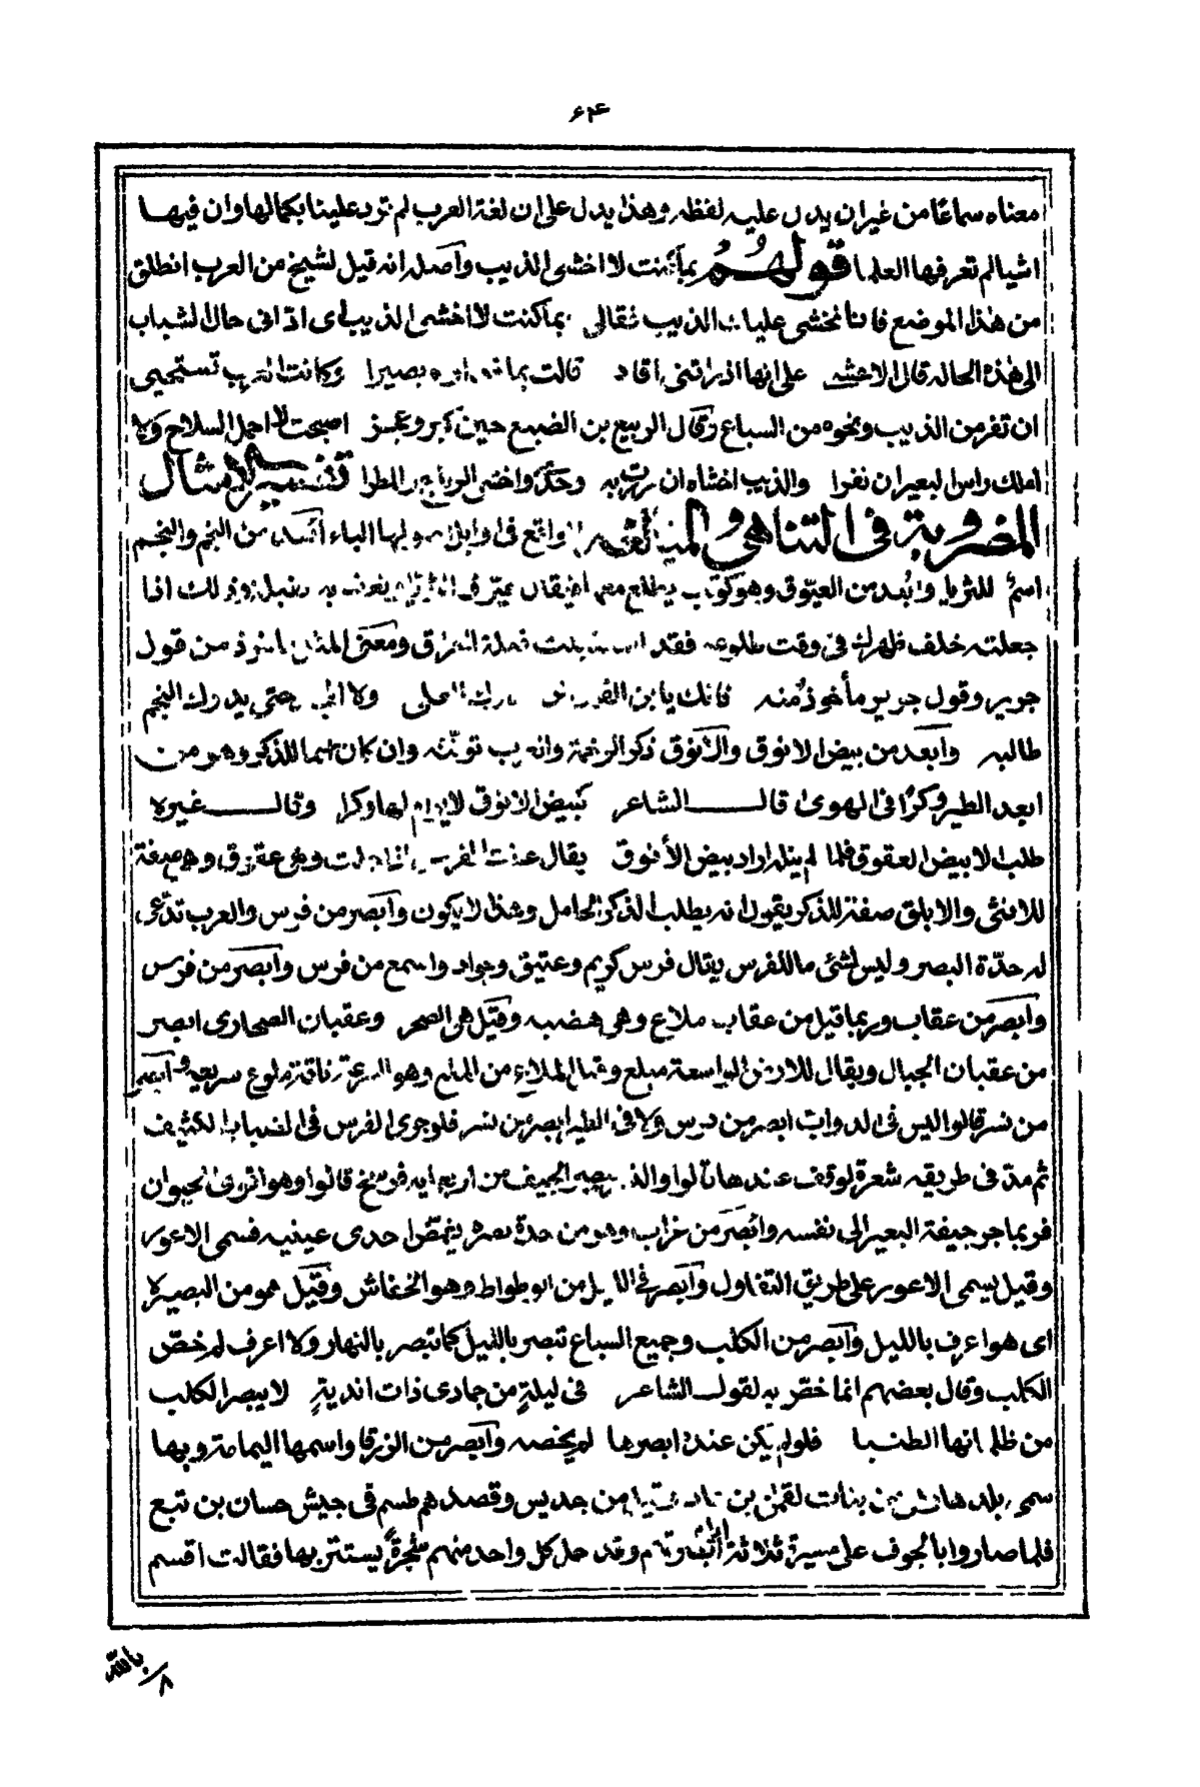 ٦٤
معناه سماعًا من غيران يدل عليه لفظه وهذا يدل على ان لغة العرب لم ترد علينا بكمالها وان فيها
اشيا لم تعرفها العلما قولهم بما كنت لا اخشى الذيب وأصله انه قيل لشيخ من العرب انطلق
من هذا الموضع فاننا نخشى عليك الذيب فقال بما كنت لا اخشى الذيب اى اذا فى حال الشباب
الى هذه الحاله قال الاعشى على انها اذ راتنى اقاد قالت بما قد اره بصيرا وكانت العرب تستحيى
ان تفر من الذيب ونحوه من السباع وقال الربيع بن الضبع حين كبر وعجز اصبحت لا احمل السلاح ولا
املك راس البعير ان نفرا والذيب اخشاه ان مررت به وحدى واخشى الرياح والمطرا تفسير الامثال
المضروبة فى التناهى والمبالغة الواقع فى اوايل الباء ابعد من النجم والنجم
اسم للثريا وابعد من العيوق وهو كوكب يطلع مع
جعلته خلف ظهرك فى وقت طلوعه فقد استقبلت قبلة العراق ومعنى المثل ماخوذ من قول
جرير وقول جرير مأخوذ منه فانك يابن القين لا النجم حتى يدرك النجم
طالبه وابعد من بيض الانوق والانوق ذكر الرخمة والعرب تونّثه وان كان اسما للذكر وهو من
ابعد الطير وكرًا فى الهوى قال الشاعر كبيض الانوق لا لها وكرا وقال غيره
طلب الابيض العقوق فلما لم ينله اراد بيض الأنوق يقال عقت الفرس اذا حملت وهى عقوق وهو صفة
للانثى والابلق صفة للذكر يقول انه يطلب الذكر الحامل وهذا لا يكون وابصر من فرس والعرب تدّعى
له حدّة البصر وليس لشئ ما للفرس يقال فرس كريم وعتيق وجواد واسمع من فرس وابصر من فرس
وابصر من عقاب وربما قيل من عقاب ملاع وهى هضبه وقيل هى الصحر وعقبان الصحارى ابصر
من عقبان الجبال ويقال للارض الواسعة مبلع وقيل الملاع من الملع وهو السرعة ناقة ملوع سريعه وابصر
من نسر قالوا ليس فى الدواب ابصر من فرس ولا فى الطير ابصر من نسر فلو جرى الفرس فى الضباب الكثيف
ثم مدّ فى طريقه شعرة لوقف عندها قالوا والنسر يبصر الجيف من اربعمايه فرسخ قالوا وهو اقوى الحيوان
فربما جر جيفة البعير الى نفسه وابصر من غراب وهو من حدة بصره يغمض احدى عينيه فسمى الاعور
وقيل يسمى الاعور على طريق التفاول وأبصر فى الليل من الوطواط وهو الخفاش وقيل هو من البصيرة
اى هو اعرف بالليل وأبصر من الكلب وجميع السباع تبصر بالليل كما تبصر بالنهار ولا اعرف لم خصّ
الكلب وقال بعضهم انما خصّ به لقول الشاعر فى ليلةٍ من جمادى ذات انديةٍ لا يبصر الكلب
من ظلمائها الطنبا فلو لم يكن عنده ابصرها لم يخصه وأبصر من الزرقا واسمها اليمامة وبها
سمى بلدها من بنات لقمان بن عاد من جديس وقصدهم طسم فى جيش حسان بن تبع
فلما صاروا بالجو على مسيرة ثلاثة ايام ابصرتهم وقد حمل كل واحد منهم شجرةً يستتر بها فقالت اقسم
بالله
٨